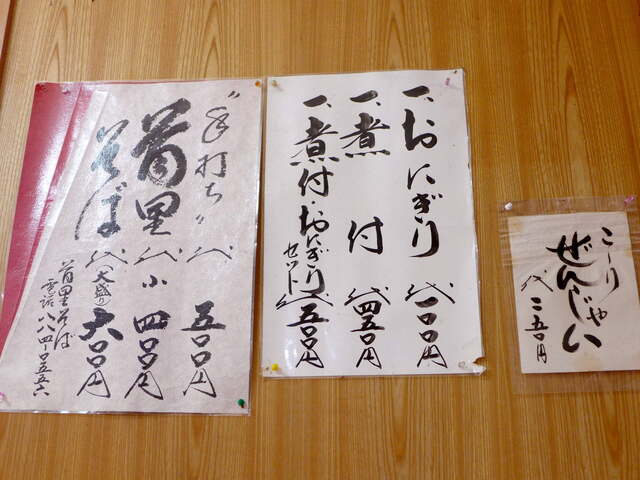 "手打ち"
首里
そば
代 五〇〇円
代 小 四〇〇円
代 大盛り 六〇〇円
首里そば
電話八八四-〇五五六
一、おにぎり 代 一〇〇円
一、煮付 代 四五〇円
一、煮付・おにぎり セット 代 五〇〇円
こーりゃ
ぜんじゃい
代 二五〇円